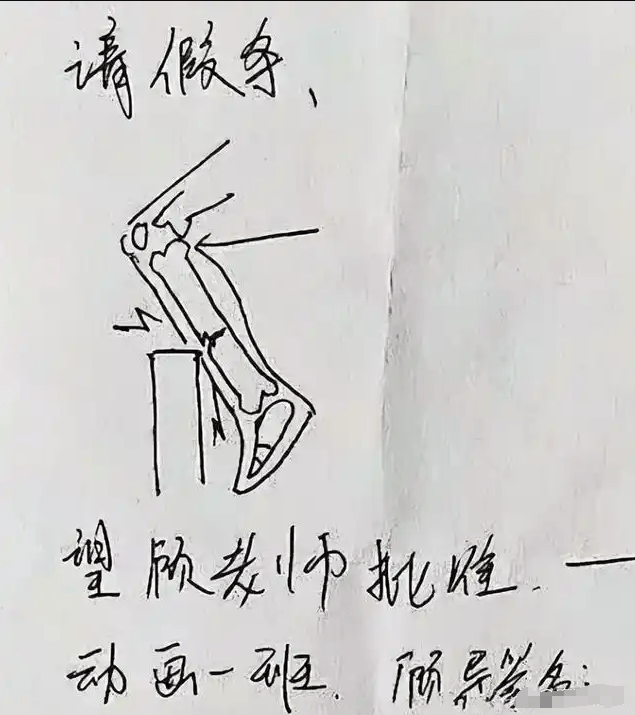 请假条、
望顾老师批准.一
动画一班. 顾导签名: